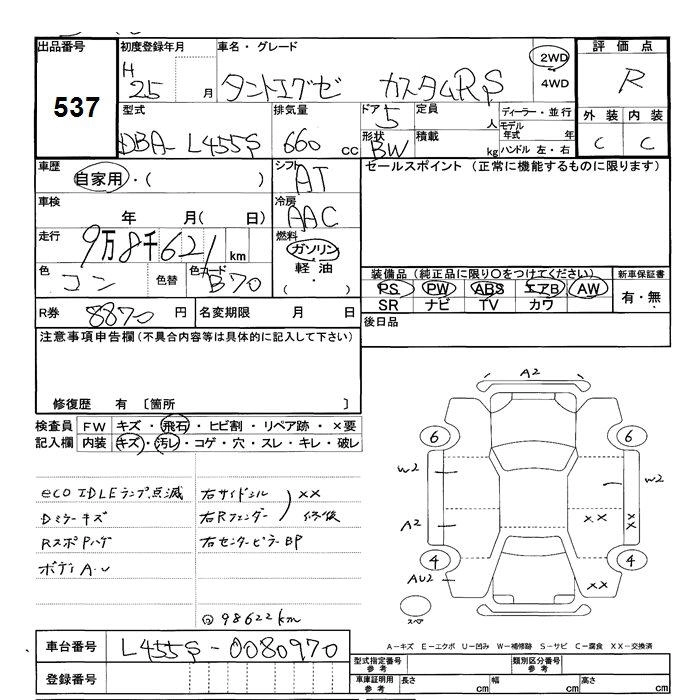 出品番号 初度登録年月 車名・グレード 2WD 評価点
537 H 25 月 タントエグゼ カスタムRS 4WD R
型式 排気量 ドア 5 定員 人 ディーラー・並行 外装 内装
DBA- L455S 660 cc 形状 BW 積載 kg モデル年式 年 ハンドル 左・右 C C
車歴 自家用・( ) シフト AT セールスポイント (正常に機能するものに限ります)
車検 年 月( 日) 冷房 AAC
走行 9万8千621 km 燃料 ガソリン 軽油 ( ・ )
色 コン 色替 色カード B70 装備品 (純正品に限り○をつけてください) 新車保証書
PS PW ABS エアB AW 有・無
SR ナビ TV カワ
R券 8870 円 名変期限 月 日 後日品
注意事項申告欄(不具合内容等は具体的に記入して下さい)
修復歴 有 〔箇所 〕
検査員 FW キズ・飛石・ヒビ割・リペア跡・×要
記入欄 内装 キズ・汚レ・コゲ・穴・スレ・キレ・破レ
eco IDLEランプ点滅
Dミラーキズ
RスポPハゲ
ボディA・U
右サイドシル
右Rフェンダー
××
修後
右センターピラーBP
98622km
A2
6 6
W2 W2
A2 ×× ××
4 4
AU2 ××
スペア
A-キズ E-エクボ U-凹み W-補修跡 S-サビ C-腐食 XX-交換済
車台番号 L455S-0080970
登録番号
型式指定番号 参考 類別区分番号 参考
車庫証明用 参考 長さ cm 幅 cm 高さ cm